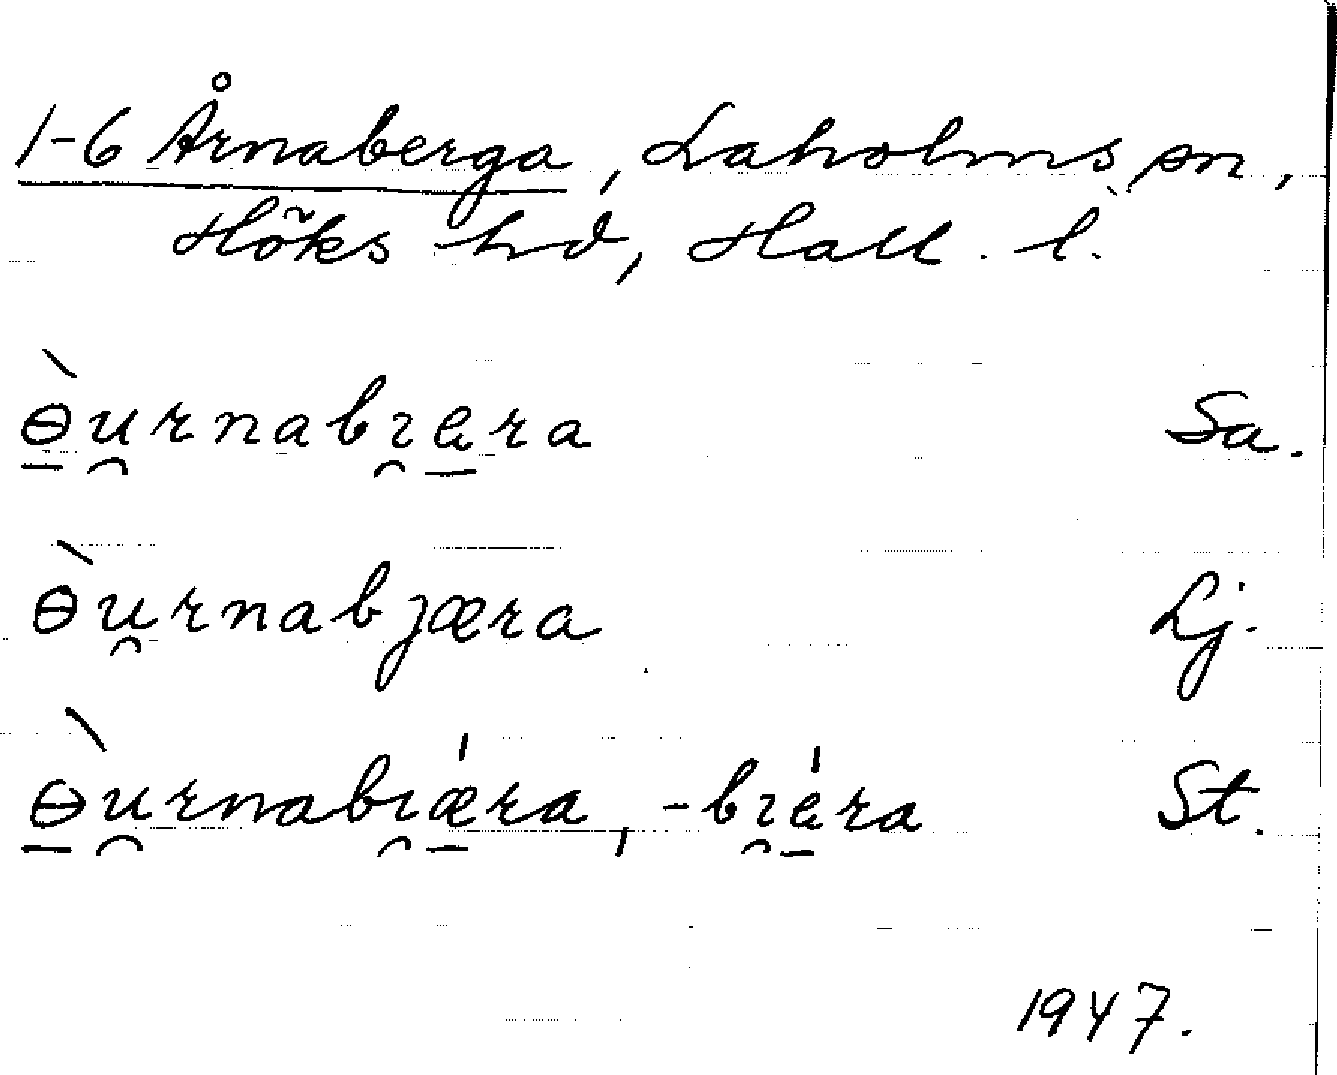 1-6 Årnaberga, Laholms sn,
Höks hd, Hall. l.
ɵ̱̀u̯rnabɿ̯a̱ra Sa.
ɵ̀u̯rnabjæra Lj.
ɵ̱̀u̯rnabı̯ǽ̱ra, -bɿ̯á̱ra St.
1947.